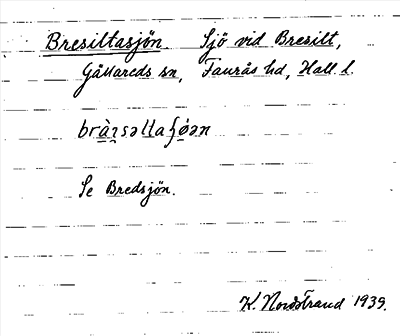 Bresiltasjön. Sjö vid Bresilt,
Gällareds sn, Faurås hd, Hall. l.
Se Bredsjön.
K. Nordstrand 1939.